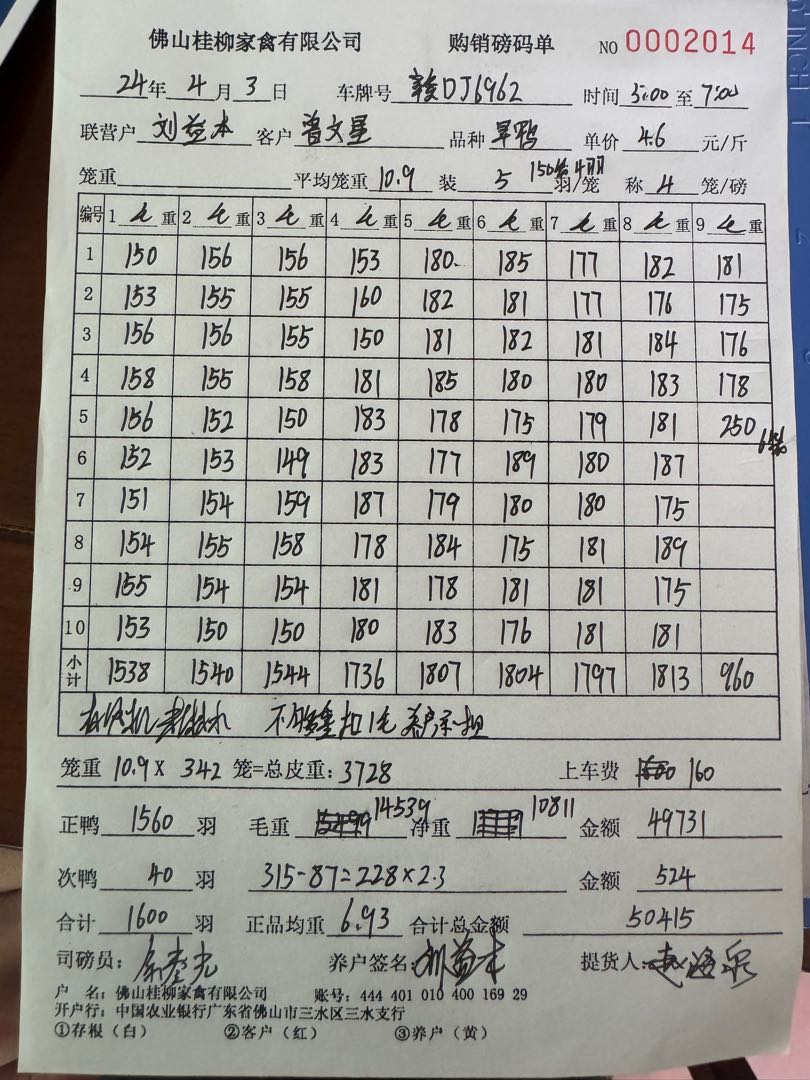 佛山桂柳家禽有限公司 购销磅码单 NO 0002014
24年 4月 3日 车牌号 赣DJ6962 时间 5:00 至 7:00
联营户 刘益本 客户 曾文星 品种 旱鸭 单价 4.6 元/斤
笼重 平均笼重 10.9 装 5 150笼4羽 羽/笼 称 4 笼/磅
编号 1 毛 重 2 毛 重 3 毛 重 4 毛 重 5 毛 重 6 毛 重 7 毛 重 8 毛 重 9 毛 重
1 150 156 156 153 180 185 177 182 181
2 153 155 155 160 182 181 177 176 175
3 156 156 155 150 181 182 181 184 176
4 158 155 158 181 185 180 180 183 178
5 156 152 150 183 178 175 179 181 250 6笼
6 152 153 149 183 177 189 180 187
7 151 154 159 187 179 180 180 175
8 154 155 158 178 184 175 181 189
9 155 154 154 181 178 181 181 175
10 153 150 150 180 183 176 181 181
小计 1538 1540 1544 1736 1807 1804 1797 1813 960
扣1毛
笼重 10.9 X 342 笼=总皮重: 3728 上车费 160
正鸭 1560 羽 毛重 14539 净重 10811 金额 49731
次鸭 40 羽 315-87=228×2.3 金额 524
合计 1600 羽 正品均重 6.93 合计总金额 50415
司磅员: 养户签名: 刘益本 提货人:
户 名: 佛山桂柳家禽有限公司 账号: 444 401 010 400 169 29
开户行: 中国农业银行广东省佛山市三水区三水支行
①存根（白） ②客户（红） ③养户（黄）